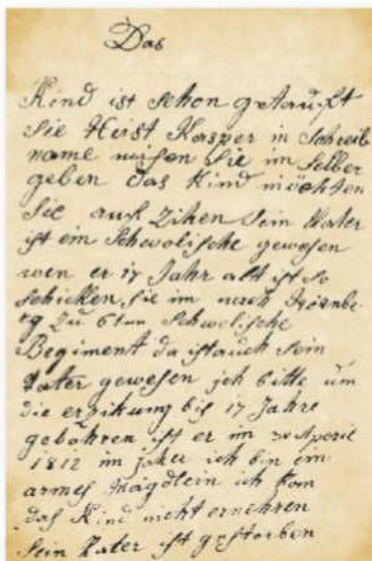 Das
Kind ist schon getauft
Sie Heist Kasper in Schreib
name misen Sie im selber
geben das Kind möchten
Sie auf Zihen Sein Vater
ist ein Schwolische gewesen
wen er 17 Jahr alt ist so
schicken Sie im nach Nirnbe
rg zu 6ten Schwolische
Begiment da ist auch sein
Vater gewesen ich bitte um
die erzikung bis 17 Jahre
gebohren ist er im 30 Aperil
1812 im Jaher ich bin ein
armes Mägdlein ich kom
das Kind nicht ernehren
Sein Vater ist gestorben